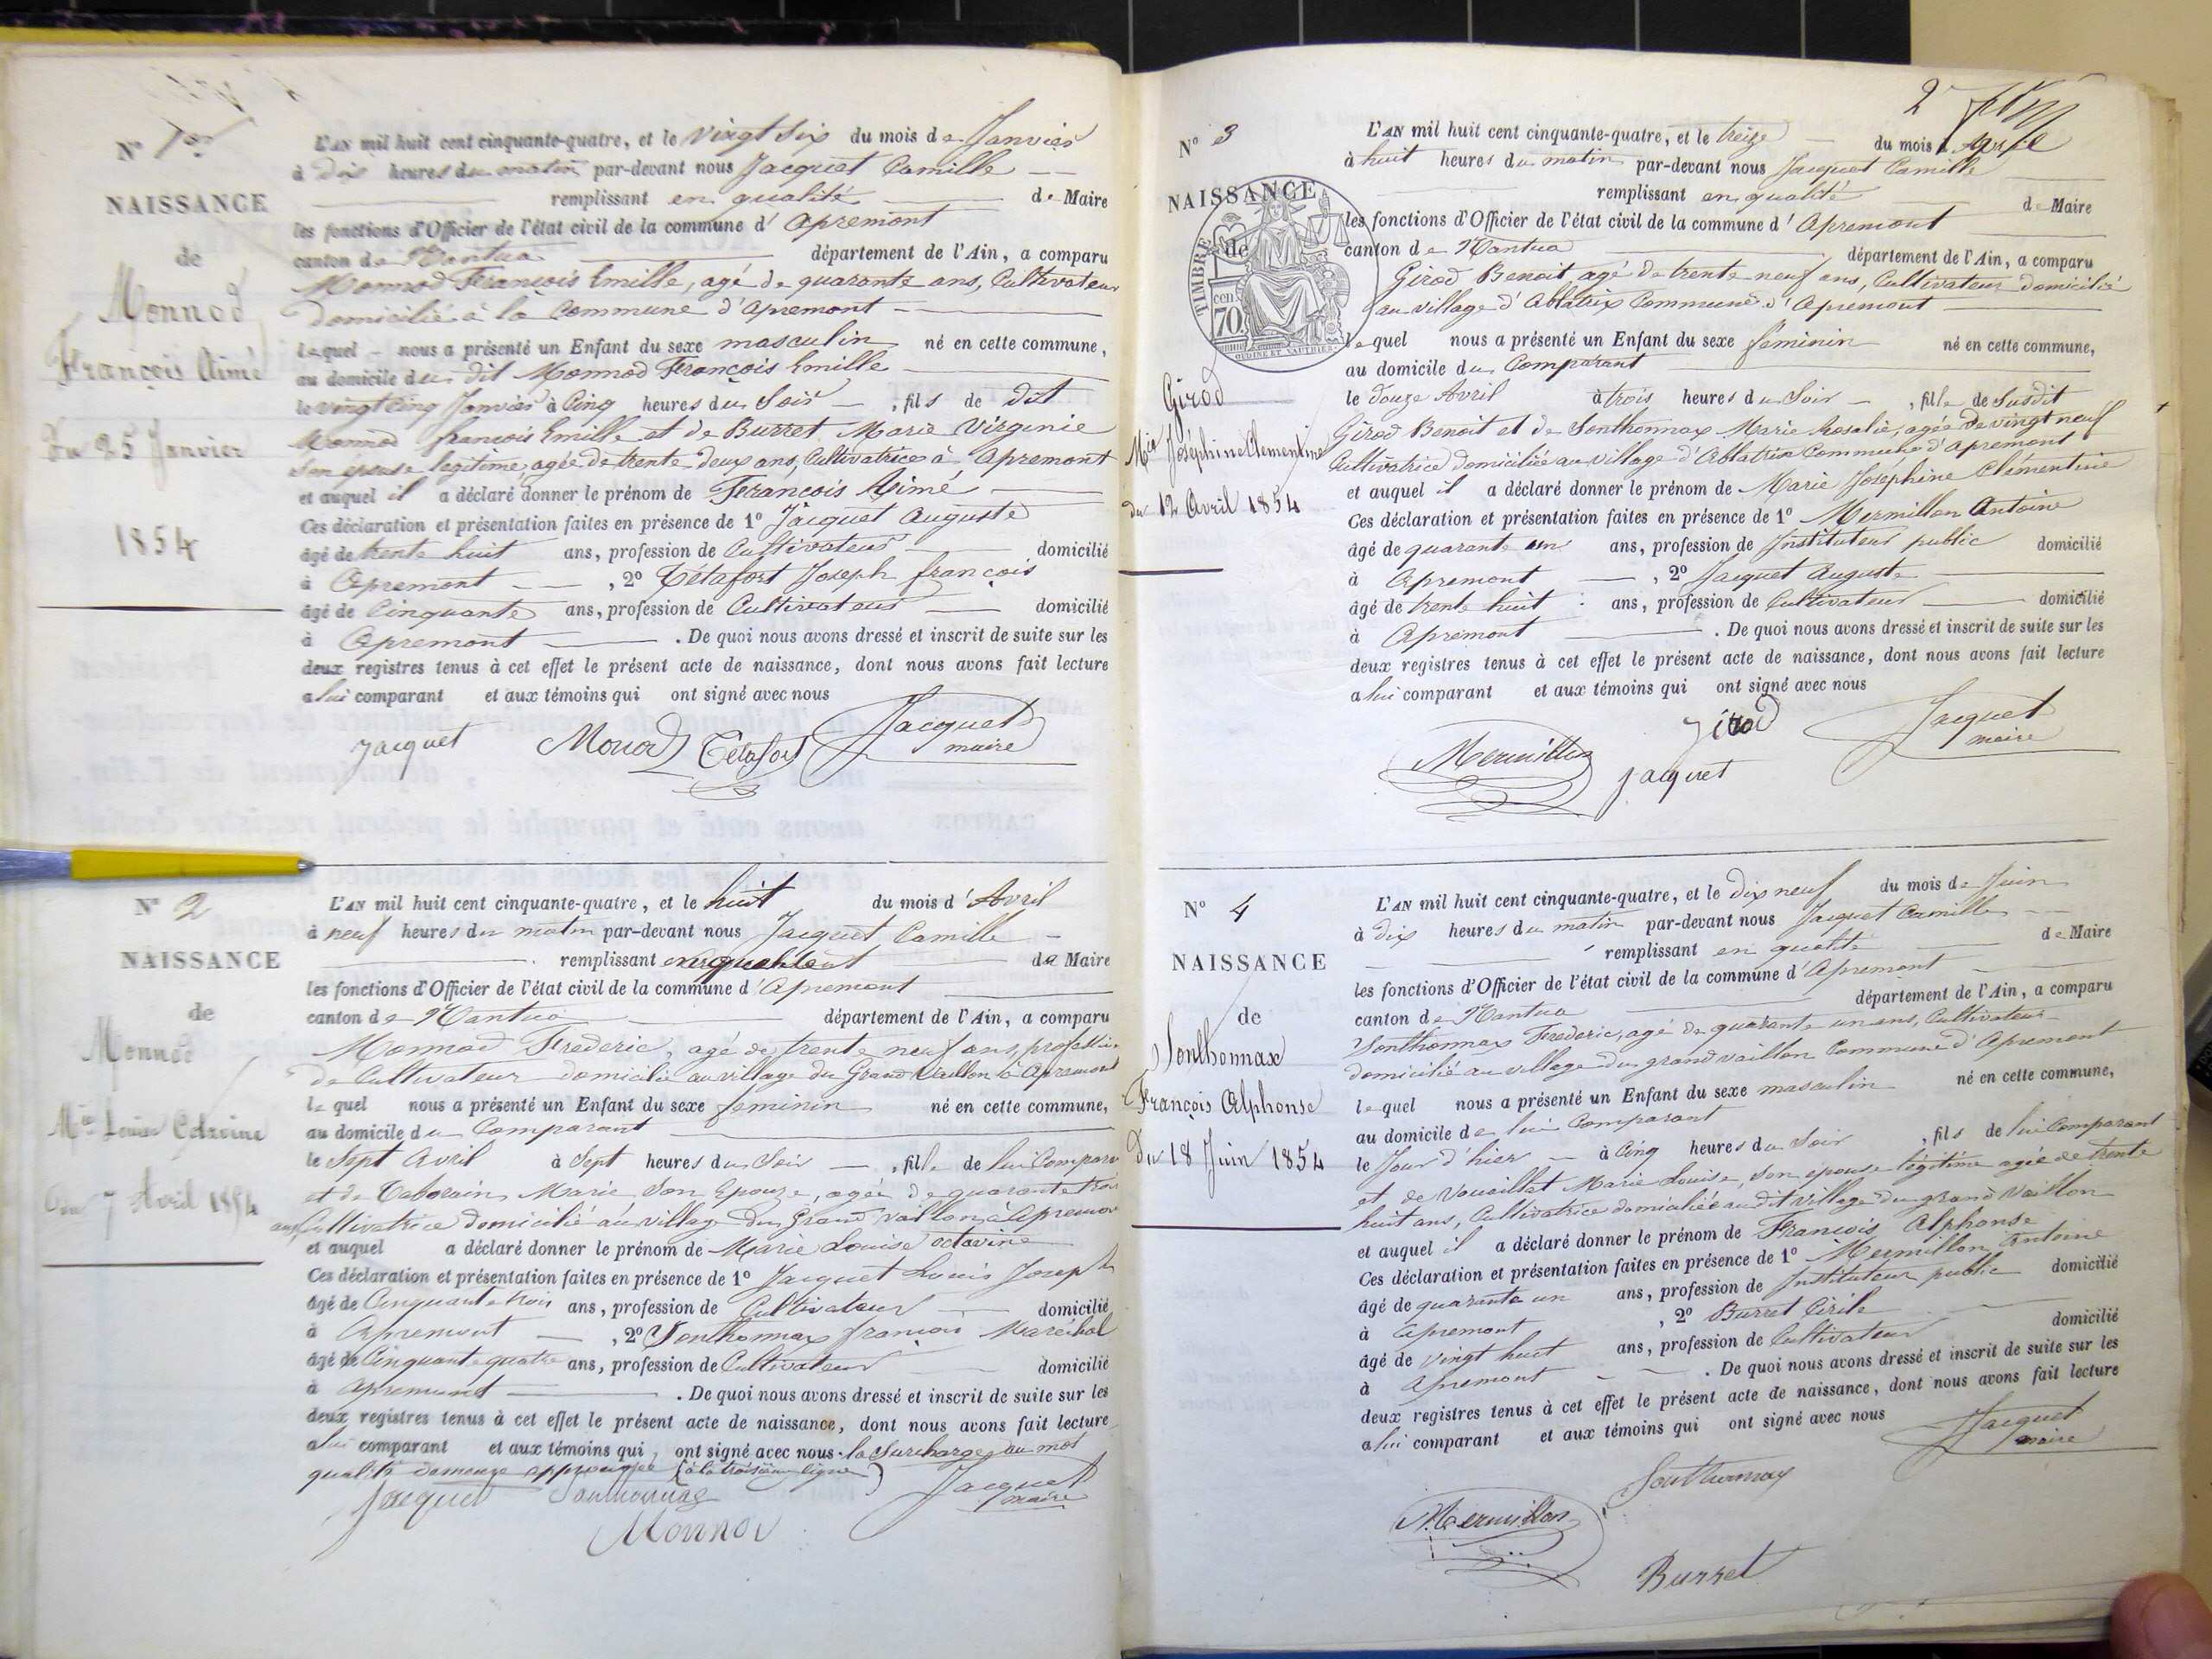 N° 1er
NAISSANCE
de
Monnod
François Aimé
Du 25 Janvier
1854
L'AN mil huit cent cinquante-quatre, et le vingt Six du mois de Janvier
à Dix heures du matin par-devant nous Jacquet Camille
remplissant en qualité de Maire
les fonctions d'Officier de l'état civil de la commune d'Apremont
canton de Nantua département de l'Ain, a comparu
Monnod François Emille, agé de quarante ans, Cultivateur
Domicilié à la Commune d'Apremont
lequel nous a présenté un Enfant du sexe masculin né en cette commune,
au domicile du dit Monnod François Emille
le vingt Cinq Janvier à Cinq heures du Soir, fils de dit
Monnod françois Emille et de Burret Marie Virginie
Son epouse légitime, agée de trente deux ans, Cultivatrice à Apremont
et auquel il a déclaré donner le prénom de François Aimé
Ces déclaration et présentation faites en présence de 1° Jacquet Auguste
âgé de trente huit ans, profession de Cultivateur domicilié
à Apremont, 2° Tétafort Joseph françois
âgé de Cinquante ans, profession de Cultivateur domicilié
à Apremont. De quoi nous avons dressé et inscrit de suite sur les
deux registres tenus à cet effet le présent acte de naissance, dont nous avons fait lecture
a lui comparant et aux témoins qui ont signé avec nous
Jacquet Monod Tétafort Jacquet
maire
N° 2
NAISSANCE
de
Monnod
Mie Louise Octavine
Du 7 Avril 1854
L'AN mil huit cent cinquante-quatre, et le huit du mois d'Avril
à neuf heures du matin par-devant nous Jacquet Camille
remplissant de Maire
les fonctions d'Officier de l'état civil de la commune d'Apremont
canton de Nantua département de l'Ain, a comparu
Monnod Frederic, agé de trente neuf ans, profession
de Cultivateur domicilié au village du Grand Vaillon à Apremont
lequel nous a présenté un Enfant du sexe feminin né en cette commune,
au domicile du Comparant
le Sept Avril à Sept heures du Soir, fille de lui Compara
et de Marie Son Epouze, agée de quarante trois
ans Cultivatrice domicilié au village du Grand Vaillon à Apremon
et auquel a déclaré donner le prénom de Marie Louise octavine
Ces déclaration et présentation faites en présence de 1° Jacquet Louis Joseph
âgé de Cinquante trois ans, profession de Cultivateur domicilié
à Apremont, 2° Sonthonnax françois Maréchal
âgé de Cinquante quatre ans, profession de Cultivateur domicilié
à Apremont. De quoi nous avons dressé et inscrit de suite sur les
deux registres tenus à cet effet le présent acte de naissance, dont nous avons fait lecture
a lui comparant et aux témoins qui ont signé avec nous. la Surcharge au mot
qualité demeure approuvée (à la troisième ligne)
Jacquet Sonthonnax Jacquet
maire
Monnod
2
N° 3
NAISSANCE
de
TIMBRE
cen.
70
OUDINE ET VAUTHIER
Girod
Mie Joséphine Clementine
du 12 Avril 1854
L'AN mil huit cent cinquante-quatre, et le treize du mois d'Avril
à huit heures du matin par-devant nous Jacquet Camille
remplissant en qualité de Maire
les fonctions d'Officier de l'état civil de la commune d'Apremont
canton de Nantua département de l'Ain, a comparu
Girod Benoit agé de trente neuf ans, Cultivateur domicilié
au village d'Ablatrix Commune d'Apremont
lequel nous a présenté un Enfant du sexe feminin né en cette commune,
au domicile du Comparant
le Douze Avril à trois heures du Soir, fille de Susdit
Girod Benoit et de Sonthonnax Marie Rosalie, agée de vingt neuf
Cultivatrice domiciliée au village d'Ablatrix Commune d'Apremont
et auquel il a déclaré donner le prénom de Marie Joséphine Clémentine
Ces déclaration et présentation faites en présence de 1° Mermillon Antoine
âgé de quarante un ans, profession de Instituteur public domicilié
à Apremont, 2° Jacquet Auguste
âgé de trente huit ans, profession de Cultivateur domicilié
à Apremont. De quoi nous avons dressé et inscrit de suite sur les
deux registres tenus à cet effet le présent acte de naissance, dont nous avons fait lecture
a lui comparant et aux témoins qui ont signé avec nous
Girod Jacquet
maire
Mermillon Jacquet
N° 4
NAISSANCE
de
Sonthonnax
François Alphonse
Du 18 Juin 1854
L'AN mil huit cent cinquante-quatre, et le Dix neuf du mois de Juin
à dix heures du matin par-devant nous Jacquet Camille
remplissant en qualité de Maire
les fonctions d'Officier de l'état civil de la commune d'Apremont
canton de Nantua département de l'Ain, a comparu
Sonthonnax Frederic, agé de quarante un ans, Cultivateur
domicilié au village du grand vaillon Commune d'Apremont
lequel nous a présenté un Enfant du sexe masculin né en cette commune,
au domicile de lui Comparant
le Jour d'hier à Cinq heures du Soir, fils de lui Comparant
et de Vouaillat Marie Louise, Son epouse légitime agée de trente
huit ans, Cultivatrice domiciliée au dit village du grand Vaillon
et auquel il a déclaré donner le prénom de François Alphonse
Ces déclaration et présentation faites en présence de 1° Mermillon Antoine
âgé de quarante un ans, profession de Instituteur public domicilié
à Apremont, 2° Burret Cirile
âgé de vingt huit ans, profession de Cultivateur domicilié
à Apremont. De quoi nous avons dressé et inscrit de suite sur les
deux registres tenus à cet effet le présent acte de naissance, dont nous avons fait lecture
a lui comparant et aux témoins qui ont signé avec nous
Jacquet
maire
Sonthonnax
Mermillon
Burret